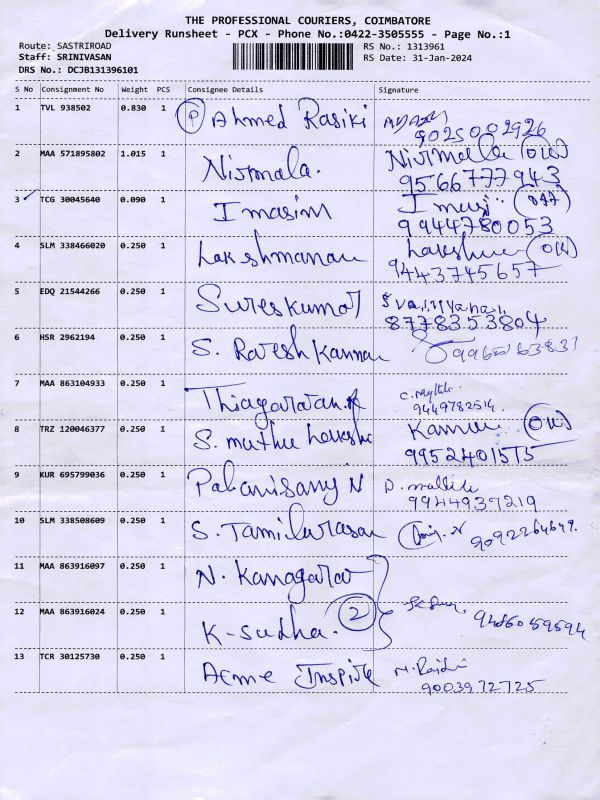 THE PROFESSIONAL COURIERS, COIMBATORE
Delivery Runsheet - PCX - Phone No.:0422-3505555 - Page No.:1
Route: SASTRIROAD
Staff: SRINIVASAN
DRS No.: DCJB131396101
RS No.: 1313961
RS Date: 31-Jan-2024
S No Consignment No Weight PCS Consignee Details Signature
1 TVL 938502 0.830 1 P Ahmed Rasiki
9025002926
2 MAA 571895802 1.015 1 Nirmala. Nirmala
9566777943
3 TCG 30045640 0.090 1 Imasim
9944780053
4 SLM 338466020 0.250 1 Lakshmanan
9443745657
5 EDQ 21544266 0.250 1 Sureskumar
8778353804
6 HSR 2962194 0.250 1 S. Rajesh Kannan
7 MAA 863104933 0.250 1 Thiagarajan
9449782514
8 TRZ 120046377 0.250 1 S. muthu Lakshmi
9952401575
9 KUR 695799036 0.250 1 Palanisamy N
9944937219
10 SLM 338508609 0.250 1 S. Tamilarasan
9092264649
11 MAA 863916097 0.250 1 N. Kanagaraj
12 MAA 863916024 0.250 1 K-Sudha. 2
9486059594
13 TCR 30125730 0.250 1 Acme Inspire
9003972725